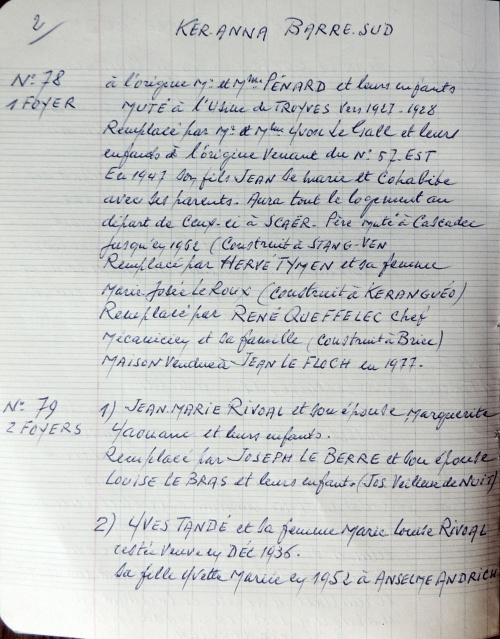 2/
KERANNA BARRE.SUD
N° 78 à l'origine Mr et Mme PÉNARD et leurs enfants
1 FOYER MUTÉ à l'Usine de TROYVES Vers 1927-1928
Remplacé par Mr et Mme Yvon Le Gall et leurs
enfants à l'origine Venant du N° 57. EST
En 1947 son fils JEAN Se marie et Cohabite
avec ses parents. Aura tout le logement au
départ de Ceux-ci à SCAËR. Père muté à Cascadec
Jusqu'en 1962 (Construit à STANG-VEN
Remplacé par HERVÉ TYMEN et sa femme
Marie Josée Le Roux (Construit à KERANGUÉO)
Remplacé par RENÉ QUEFFELEC Chef
Mécanicien et sa famille (Construit à Briec)
MAISON Vendue à JEAN LE FLOCH en 1977.
N° 79 1) JEAN.MARIE RIVOAL et son épouse, Marguerite
2 FOYERS Yaouanc et leurs enfants.
Remplacé par JOSEPH LE BERRE et son épouse
LOUISE LE BRAS et leurs enfants (JOS Veilleur de NUIT)
2) YVES TANDÉ et sa femme Marie Louise RIVOAL
restée Veuve en DÉC 1936.
Sa fille Yvette Mariée en 1952 à ANSELME ANDRICH